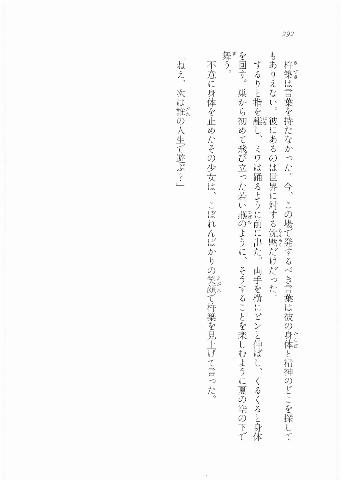 292
杵築は言葉を持たなかった。今、この場で発するべき言葉は彼の身体と精神のどこを探して
もありえない。彼にあるのは世界に対する沈黙だけだった。
するりと指を離し、ミワは踊るように前に出た。両手を横にピンと伸ばし、くるくると身体
を回す。巣から初めて飛び立った若い燕のように、そうすることを楽しむように夏の空の下で
舞う。
不意に身体を止めたその少女は、こぼれんばかりの笑顔で杵築を見上げて言った。
「ねえ、次は誰の人生で遊ぶ?」